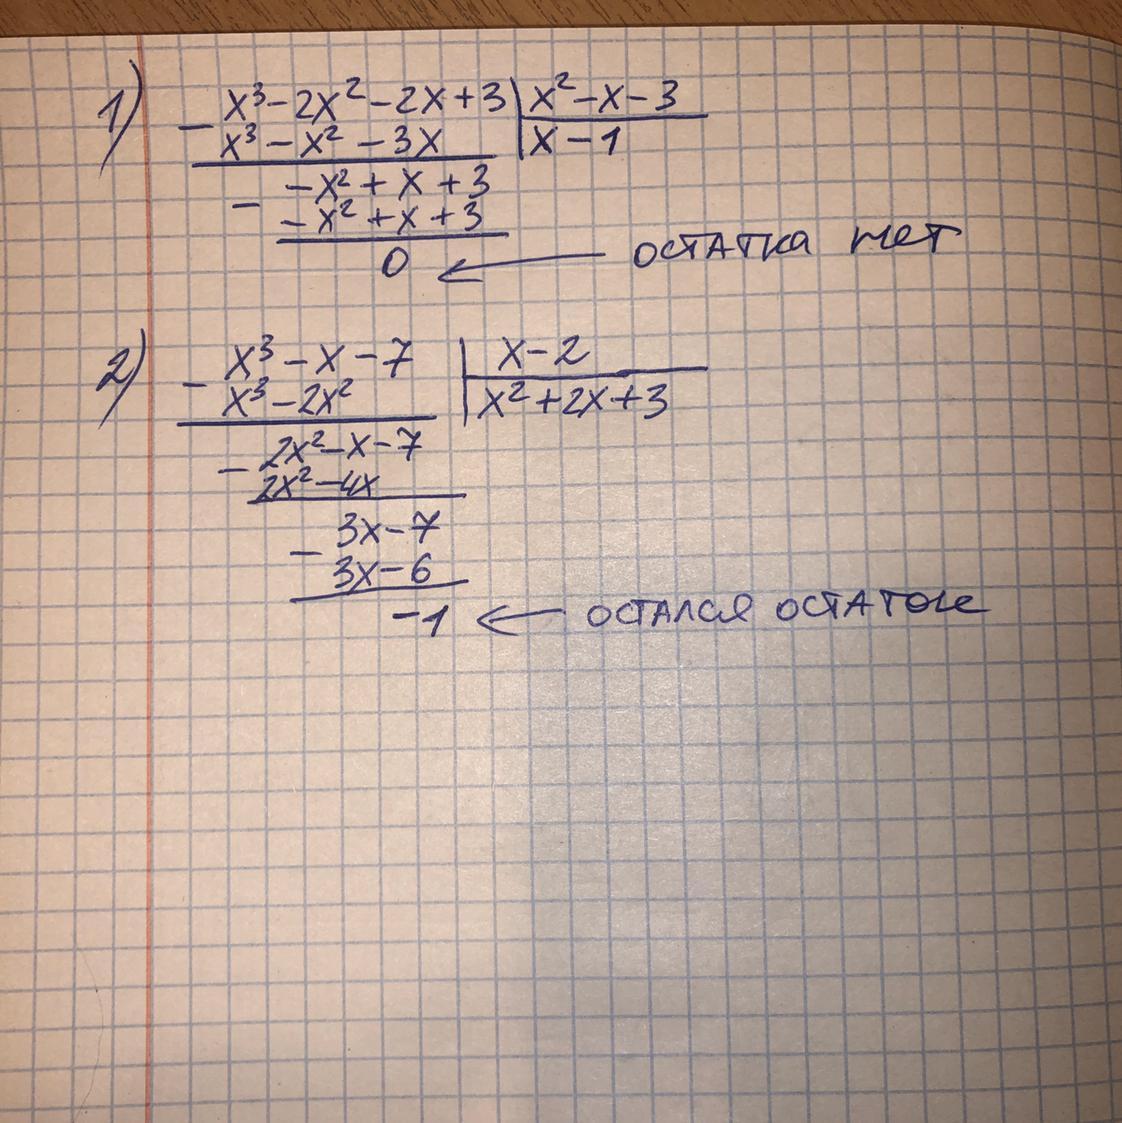 1) x³-2x²-2x+3 | x²-x-3
- x³-x²-3x | x-1
-x²+x+3
- -x²+x+3
0 ← остатка нет
2) x³-x-7 | x-2
- x³-2x² | x²+2x+3
2x²-x-7
- 2x²-4x
3x-7
- 3x-6
-1 ← остался остаток